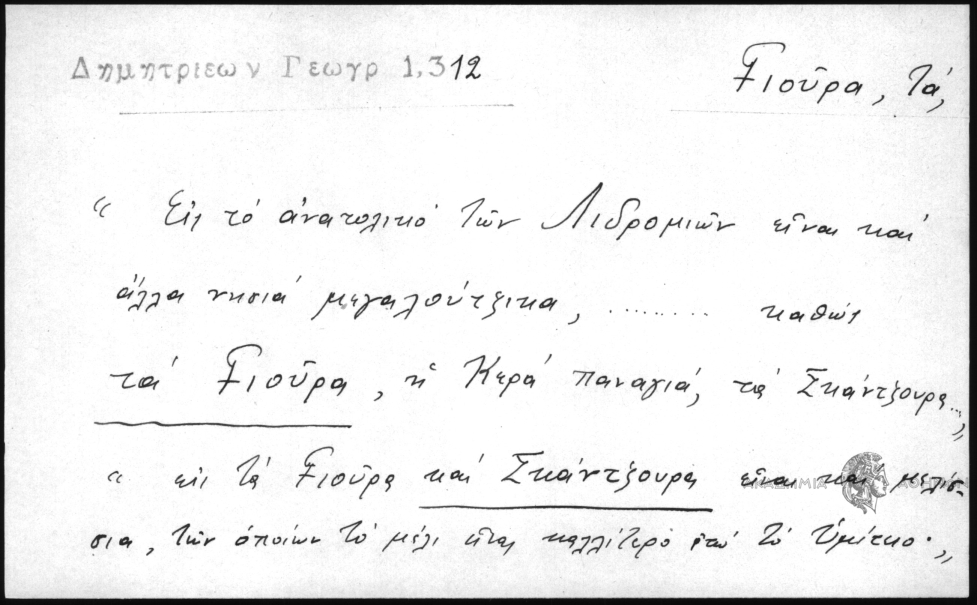 Δημητριεων Γεωγρ 1,312
Γιοῦρα, τά,
“ Εἰς τό ἀνατολικό τῶν Λιδρομιῶν εἶναι καί
ἄλλα νησιά μεγαλούτζικα, ......... καθώς
τά Γιοῦρα, ἡ Κερά παναγιά, τά Σκάντζουρα...,,
“ εἰς τά Γιοῦρα καί Σκάντζουρα εἶναι καί μελίσ-
σια, τῶν ὁποίων τό μέλι εἶναι καλλίτερο τό Ὑμίτειο.,,
ΑΚΑΔΗΜΙΑ ΑΘΗΝΩΝ